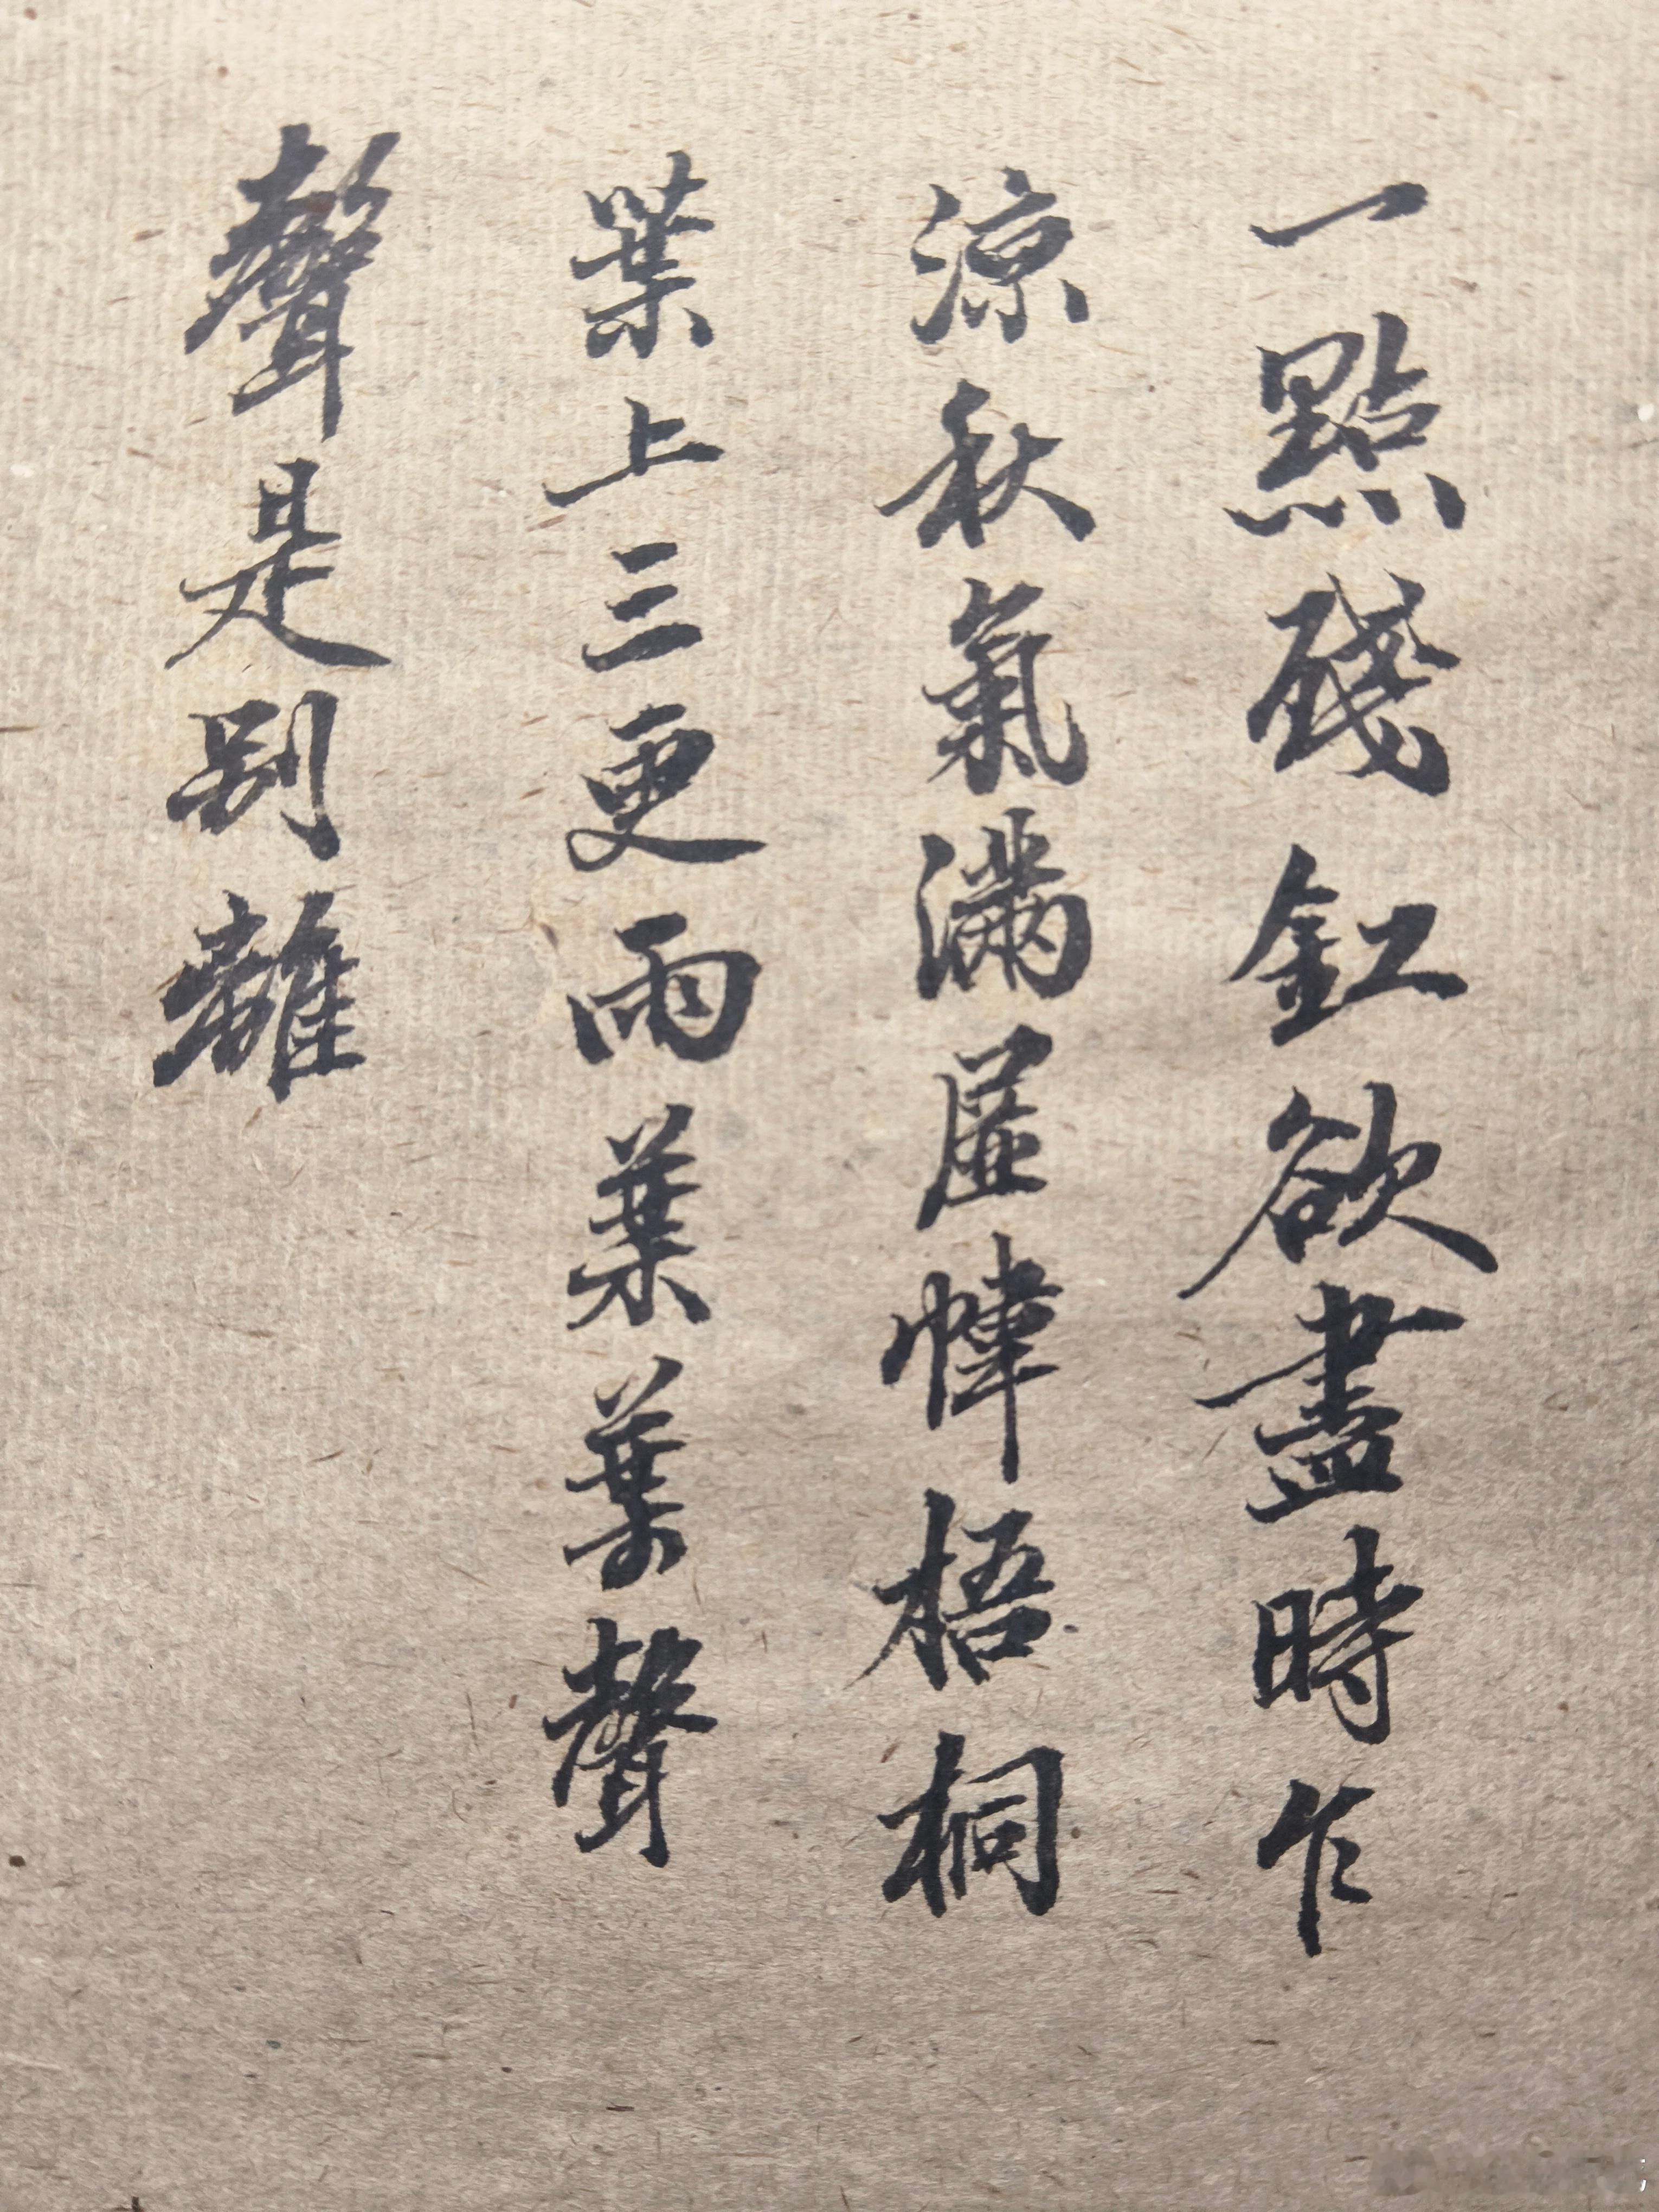 一點殘釭欲盡時乍
涼秋氣滿屋幃梧桐
葉上三更雨葉葉聲
聲是別離